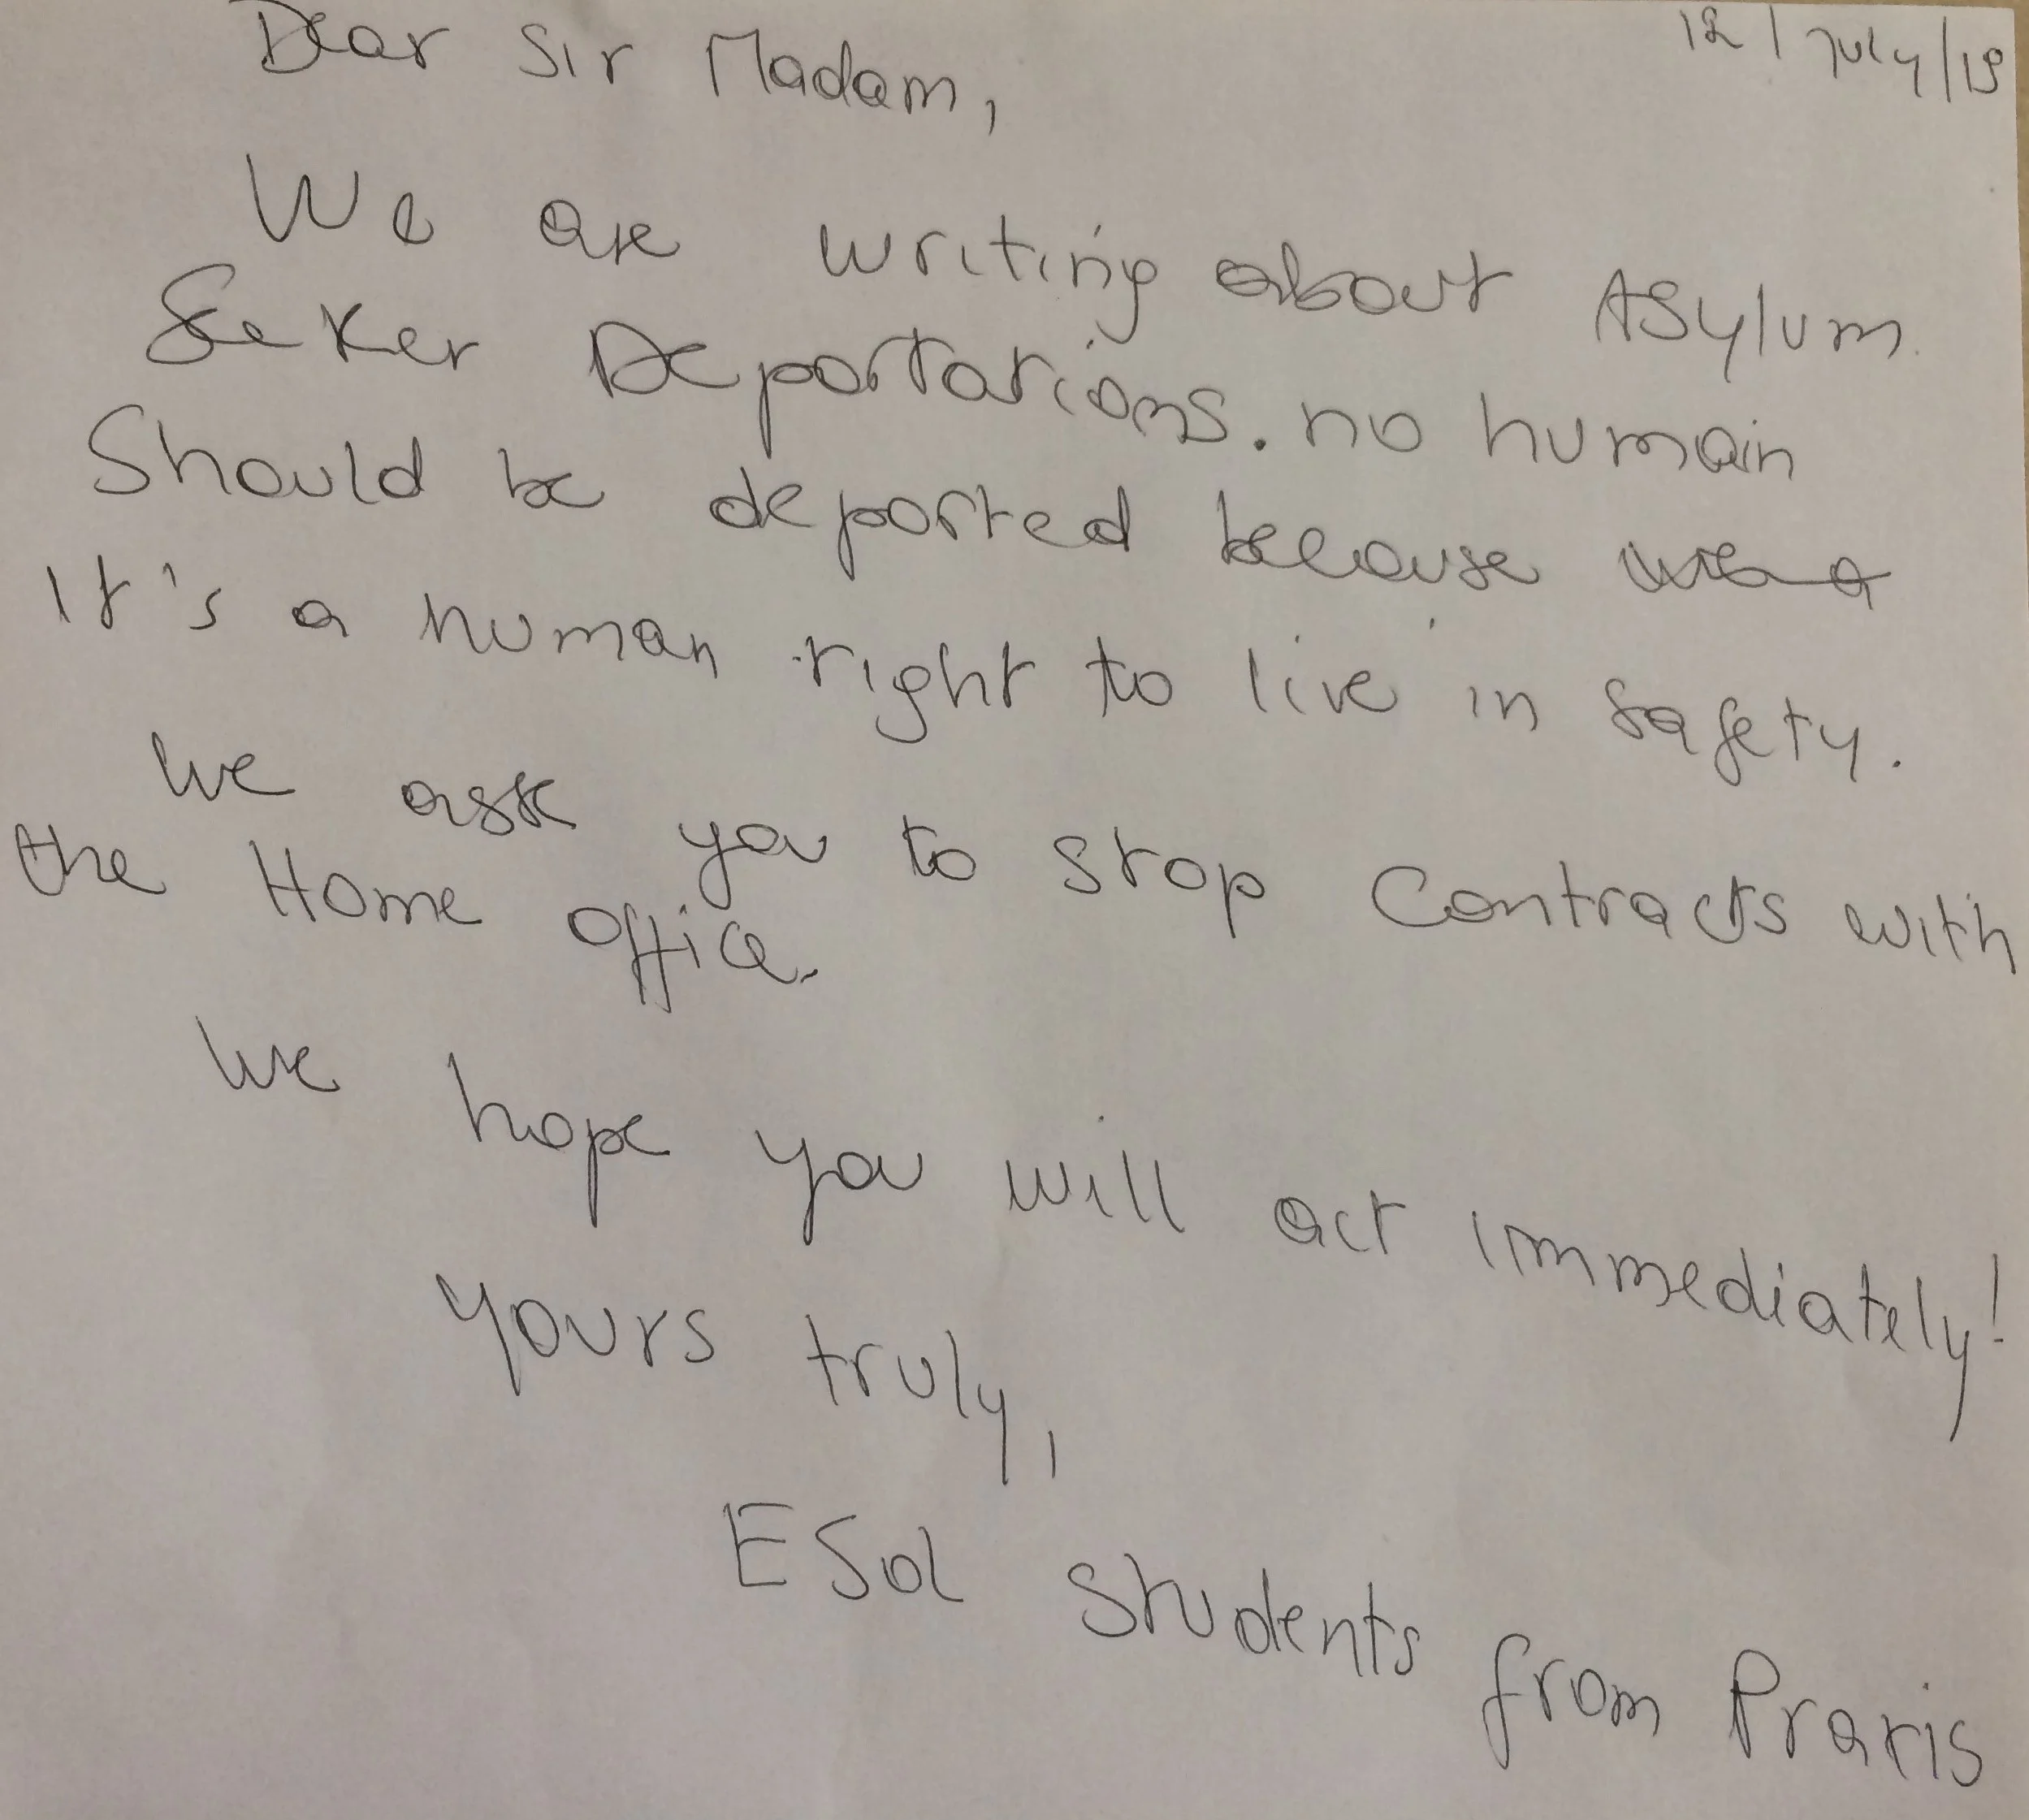 12/July/19
Dear Sir Madam,
We are writing about Asylum
Seeker Deportations. no humain
Should be deported because
It's a human right to live in safety.
We ask you to stop Contracts with
the Home Office.
We hope you will act immediately!
Yours truly,
ESol Students from Praxis